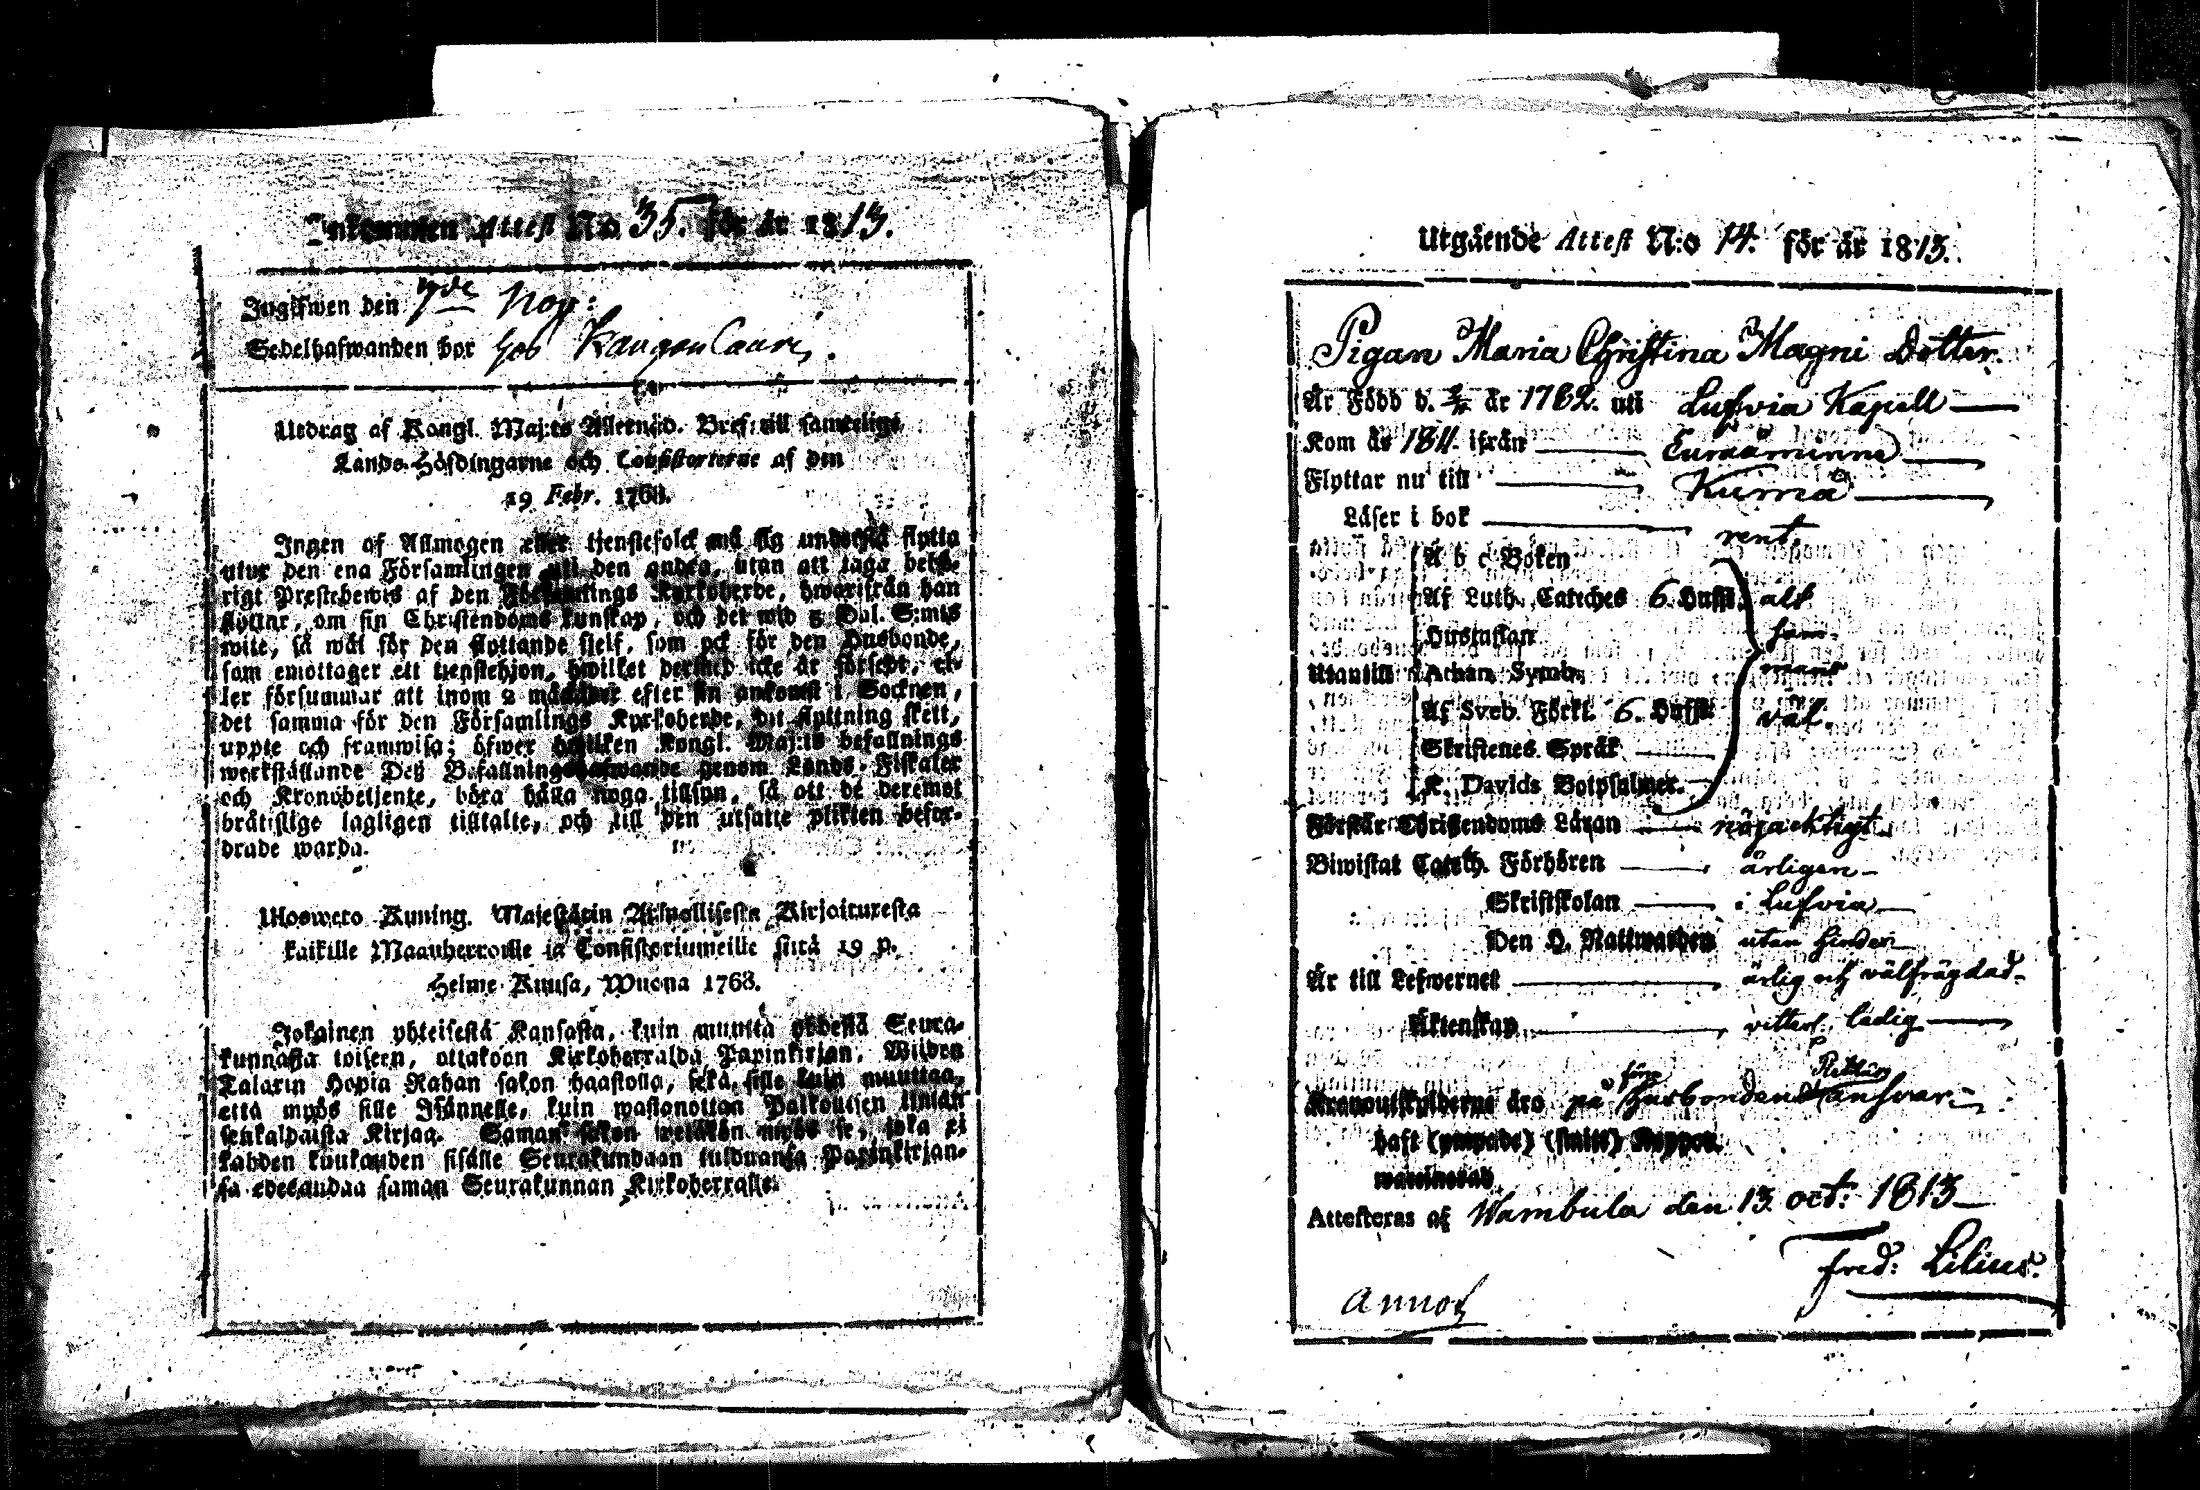 Inkommen Attest No 35. för år 1813.
Ingifwen den 7de Nov:
Sedelhafwanden bor hos
Utdrag af Kongl. Maj:ts Allernåd. Bref till samtelige
Lands-Höfdingarne och Consistorierne af den
19 Febr. 1768.
Ingen af Allmogen eller tjenstefolck må sig understå flytta
utur den ena Församlingen till den andra, utan att taga behö-
rigt Prestebewis af den Församlings Kyrkoherde, hwarifrån han
flyttar, om sin Christendoms kunskap, och det wid 5 Dal. S:mts
wite, så wäl för den flyttande sjelf, som ock för den Husbonde,
som emottager ett tjenstehjon, hwilket dermed icke är försedt, el-
ler försummar att inom 2 månader efter sin ankomst i Socknen,
det samma för den Församlings Kyrkoherde, dit flyttning skett,
uppte och framwisa; öfwer hwilken Kongl. Maj:ts befallnings
werkställande Deß Befallningshafwande genom Lands-Fiskaler
och Kronobetjente, böra hålla noga tillsyn, så att de deremot
brätislige lagligen tilltalte, och till den utsatte plikten befor-
drade warda.
Uloswето Kuning. Majestätin Armollisesta Kirjoituxesta
kaikille Maanherroille ja Consistoriumeille siitä 19 p.
Helme Kuusa, Wuona 1768.
Jokainen yhteisestä Kansasta, kuin muutta yhdestä Seura-
kunnasta toiseen, ottakoon Kirkoherralda Papinkirjan, Wiiden
Talarin Hopia Rahan sakon haastolla, sekä sille kuin muuttaa,
että myös sille Isännelle, kuin wastanottaa Palkoutsen ilman
senkaldaista Kirjaa. Saman sakon wetäkön myös se, joka ei
kahden kuukauden sisälle Seurakundaan tulduansa Papinkirjan-
sa edesandaa saman Seurakunnan Kirkoherralle.
Utgående Attest N:o 14. för år 1813.
Pigan Maria Christina Magni Dotter.
Är Född d. år 1762. uti Lufvia Kapell
Kom år 1811. ifrån Euraåminne
Flyttar nu till Kumå
Läser i bok rent.
A b c Boken
Af Luth. Cateches 6. Hufst. alt
Hustaflan sam-
Utantill Athan. Symb. mans
Af Sveb. Förkl. 6. Hufst. väl.
Skriftenes Språk
K. Davids Botpsalmer.
Förstår Christendoms Läran nöjacktigt
Biwistat Catech. Förhören årligen
Skriftskolan i Lufvia
Den H. Nattwarden utan hinder
Är till Lefwernet ärlig och välfrägdad
Äktenskap vitterl. ledig
Kronoutskylderne äro på förre Husbonden ansvar
haft (ympade) (smitt) Koppor.
waccinerad
Attesteras af Wambula den 13 oct: 1813
Fred: Lilius.
Annot